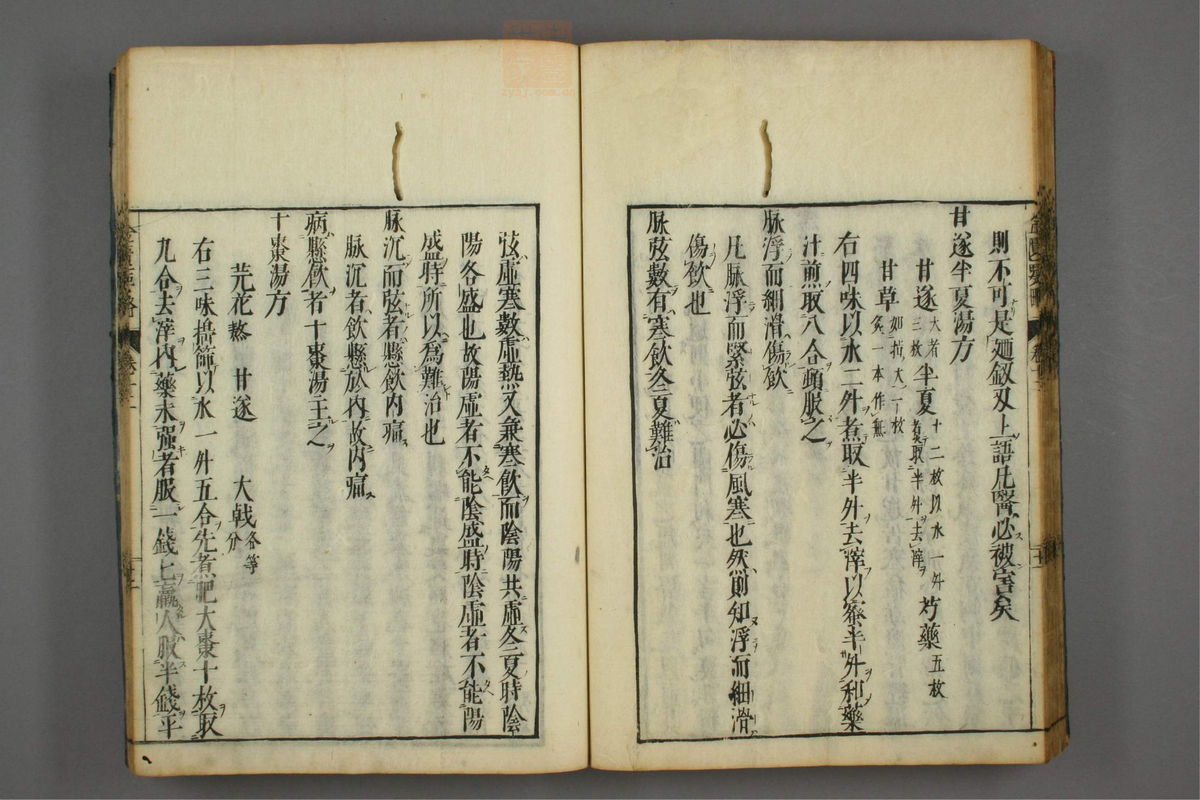 則不可是麺釵刄上語凡醫必被害矣
甘遂半夏湯方
甘遂大者三枚半夏十二枚以水一升煮取半升去滓芍藥五枚
甘草如指大一枚炙一本作無
右四味以水二升煮取半升去滓以蜜半升和藥
汁煎取八合頓服之
脉浮而細滑傷飲
凡脉浮而緊弦者必傷風寒也然則知浮而細滑
傷飲也
脉弦數有寒飲冬夏難治
弦虛寒數虛熱又兼寒飲而陰陽共虛冬夏時陰
陽各盛也故陽虛者不能陰盛時陰虛者不能陽
盛時所以爲難治也
脉沉而弦者懸飲内痛
脉沉者飲懸於内故内痛
病懸飲者十棗湯主之
十棗湯方
芫花熬 甘遂 大戟各等分
右三味搗篩以水一升五合先煮肥大棗十枚取
九合去滓内藥末强者服一錢匕羸人服半錢平